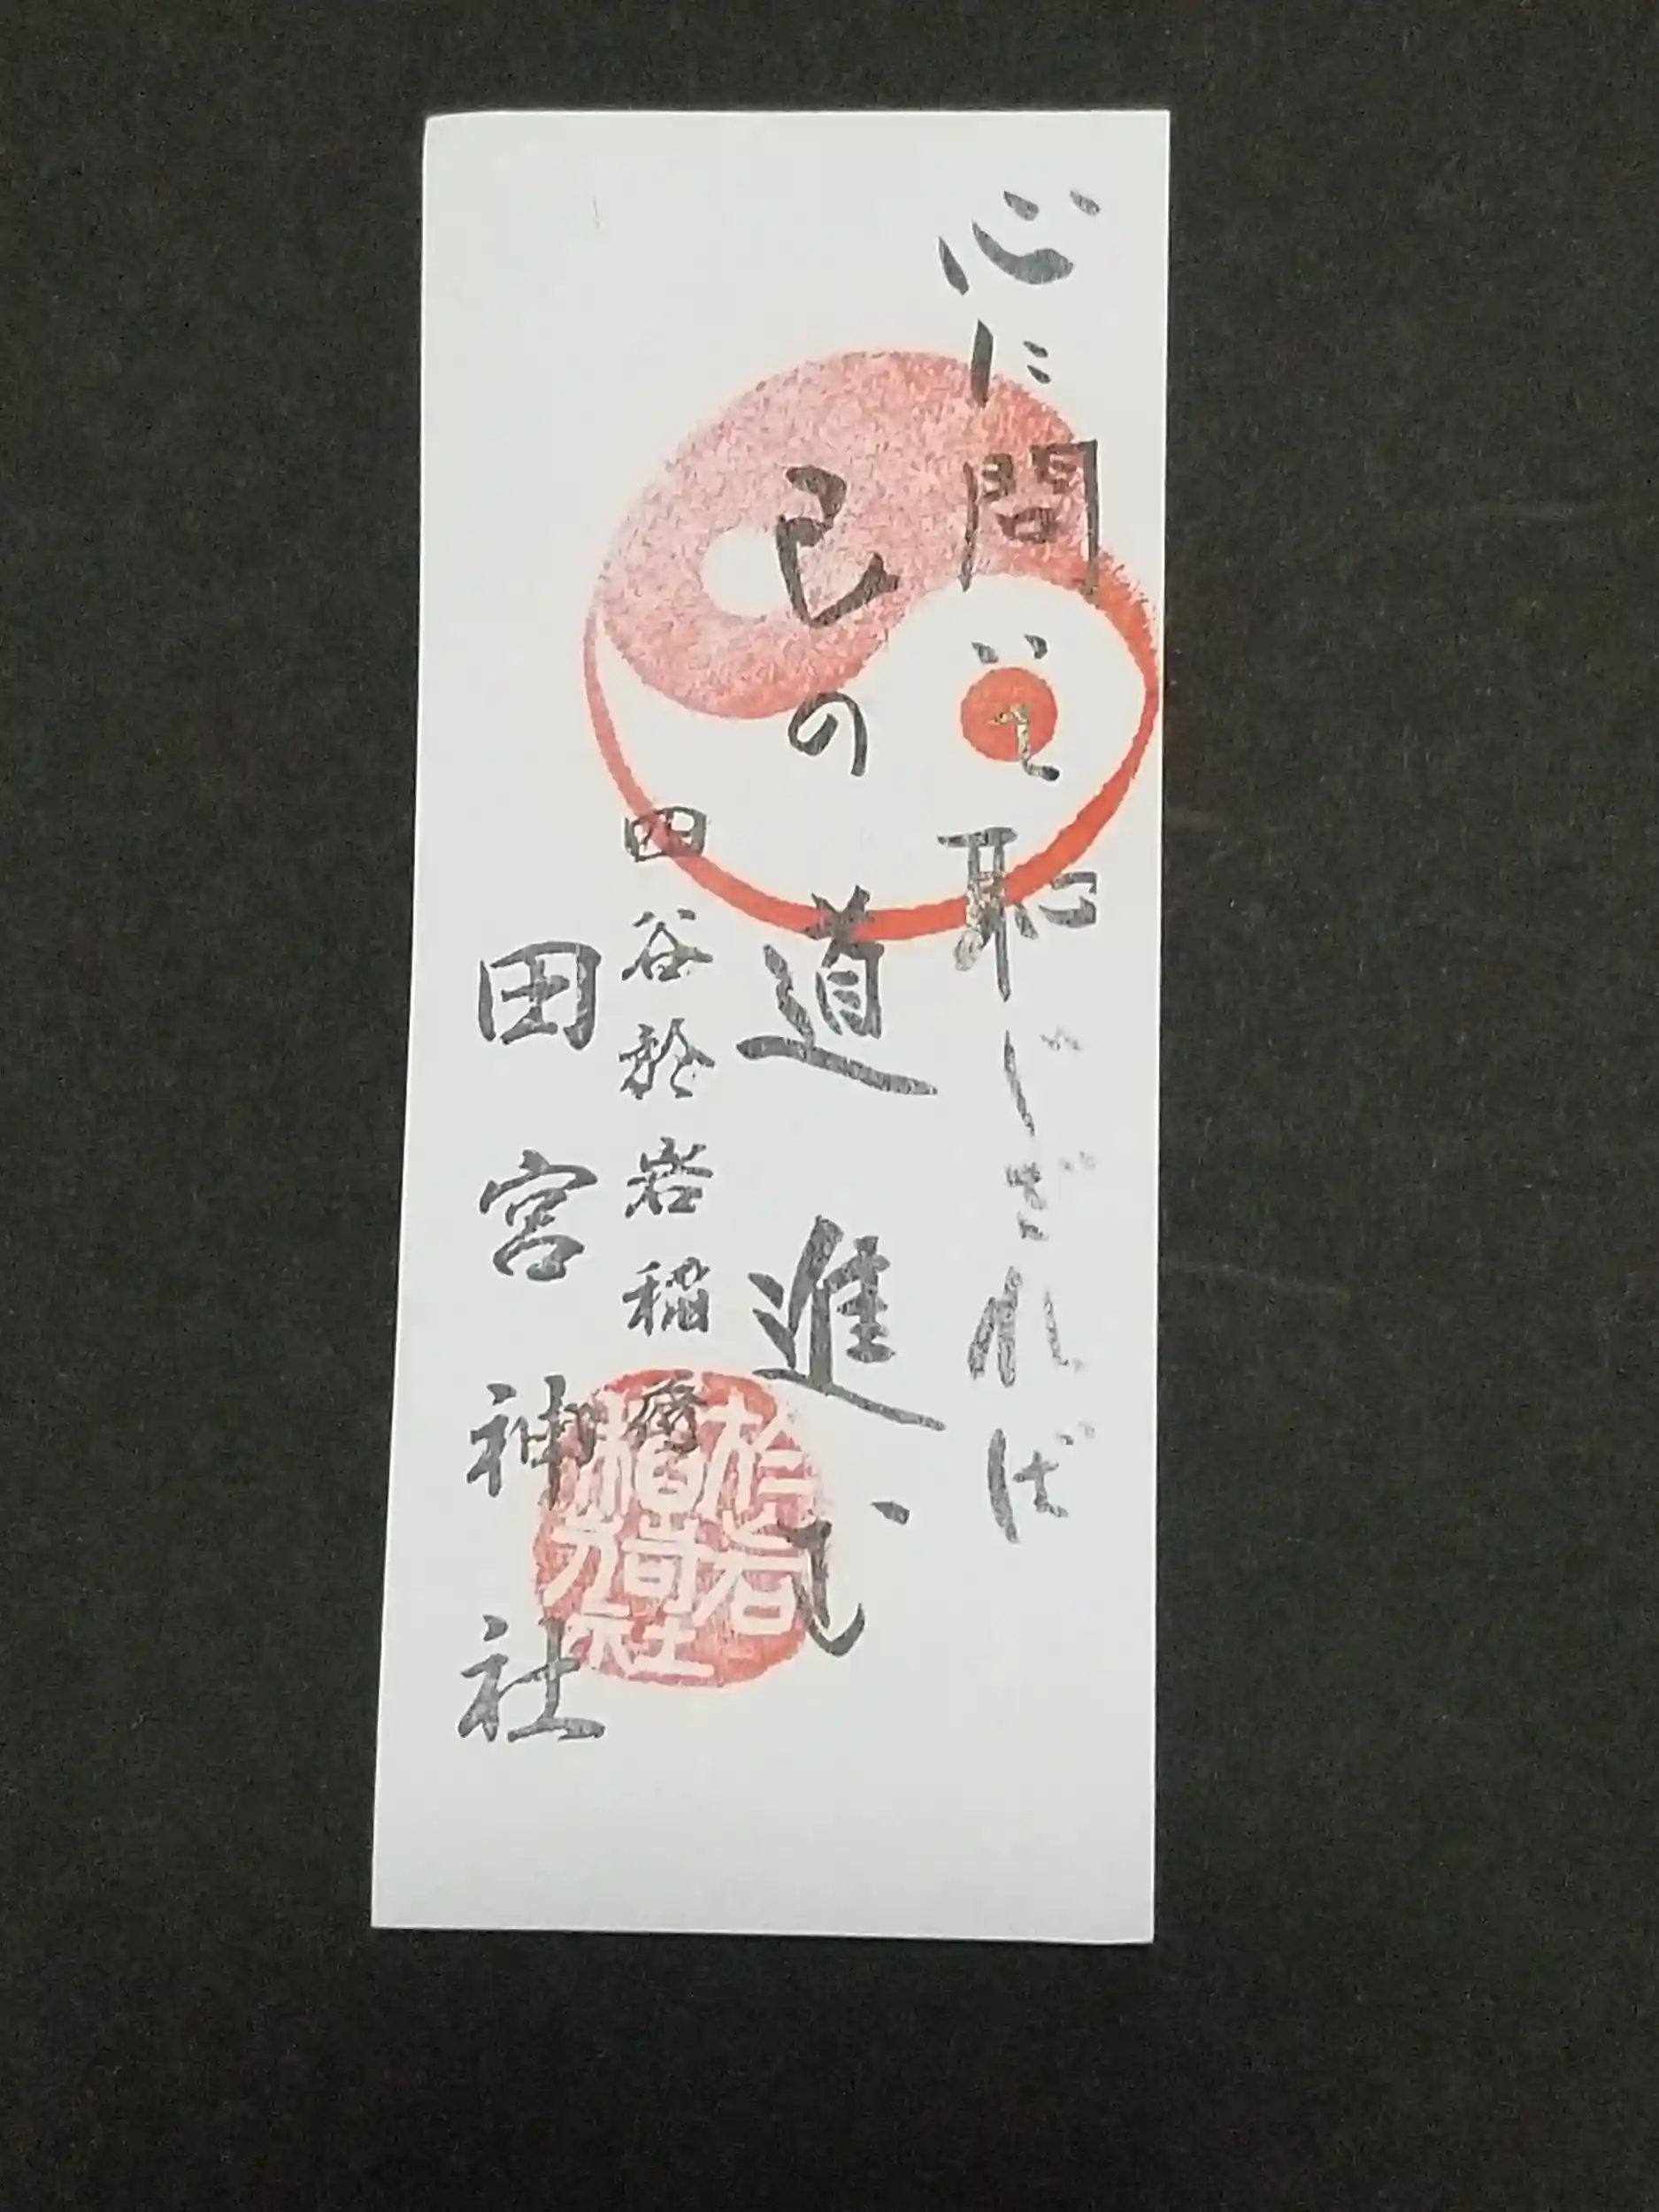 心に問いて恥じざれば
己の道進むべし
四谷於岩稲荷
田宮神社
於岩
稲荷
田宮
神社